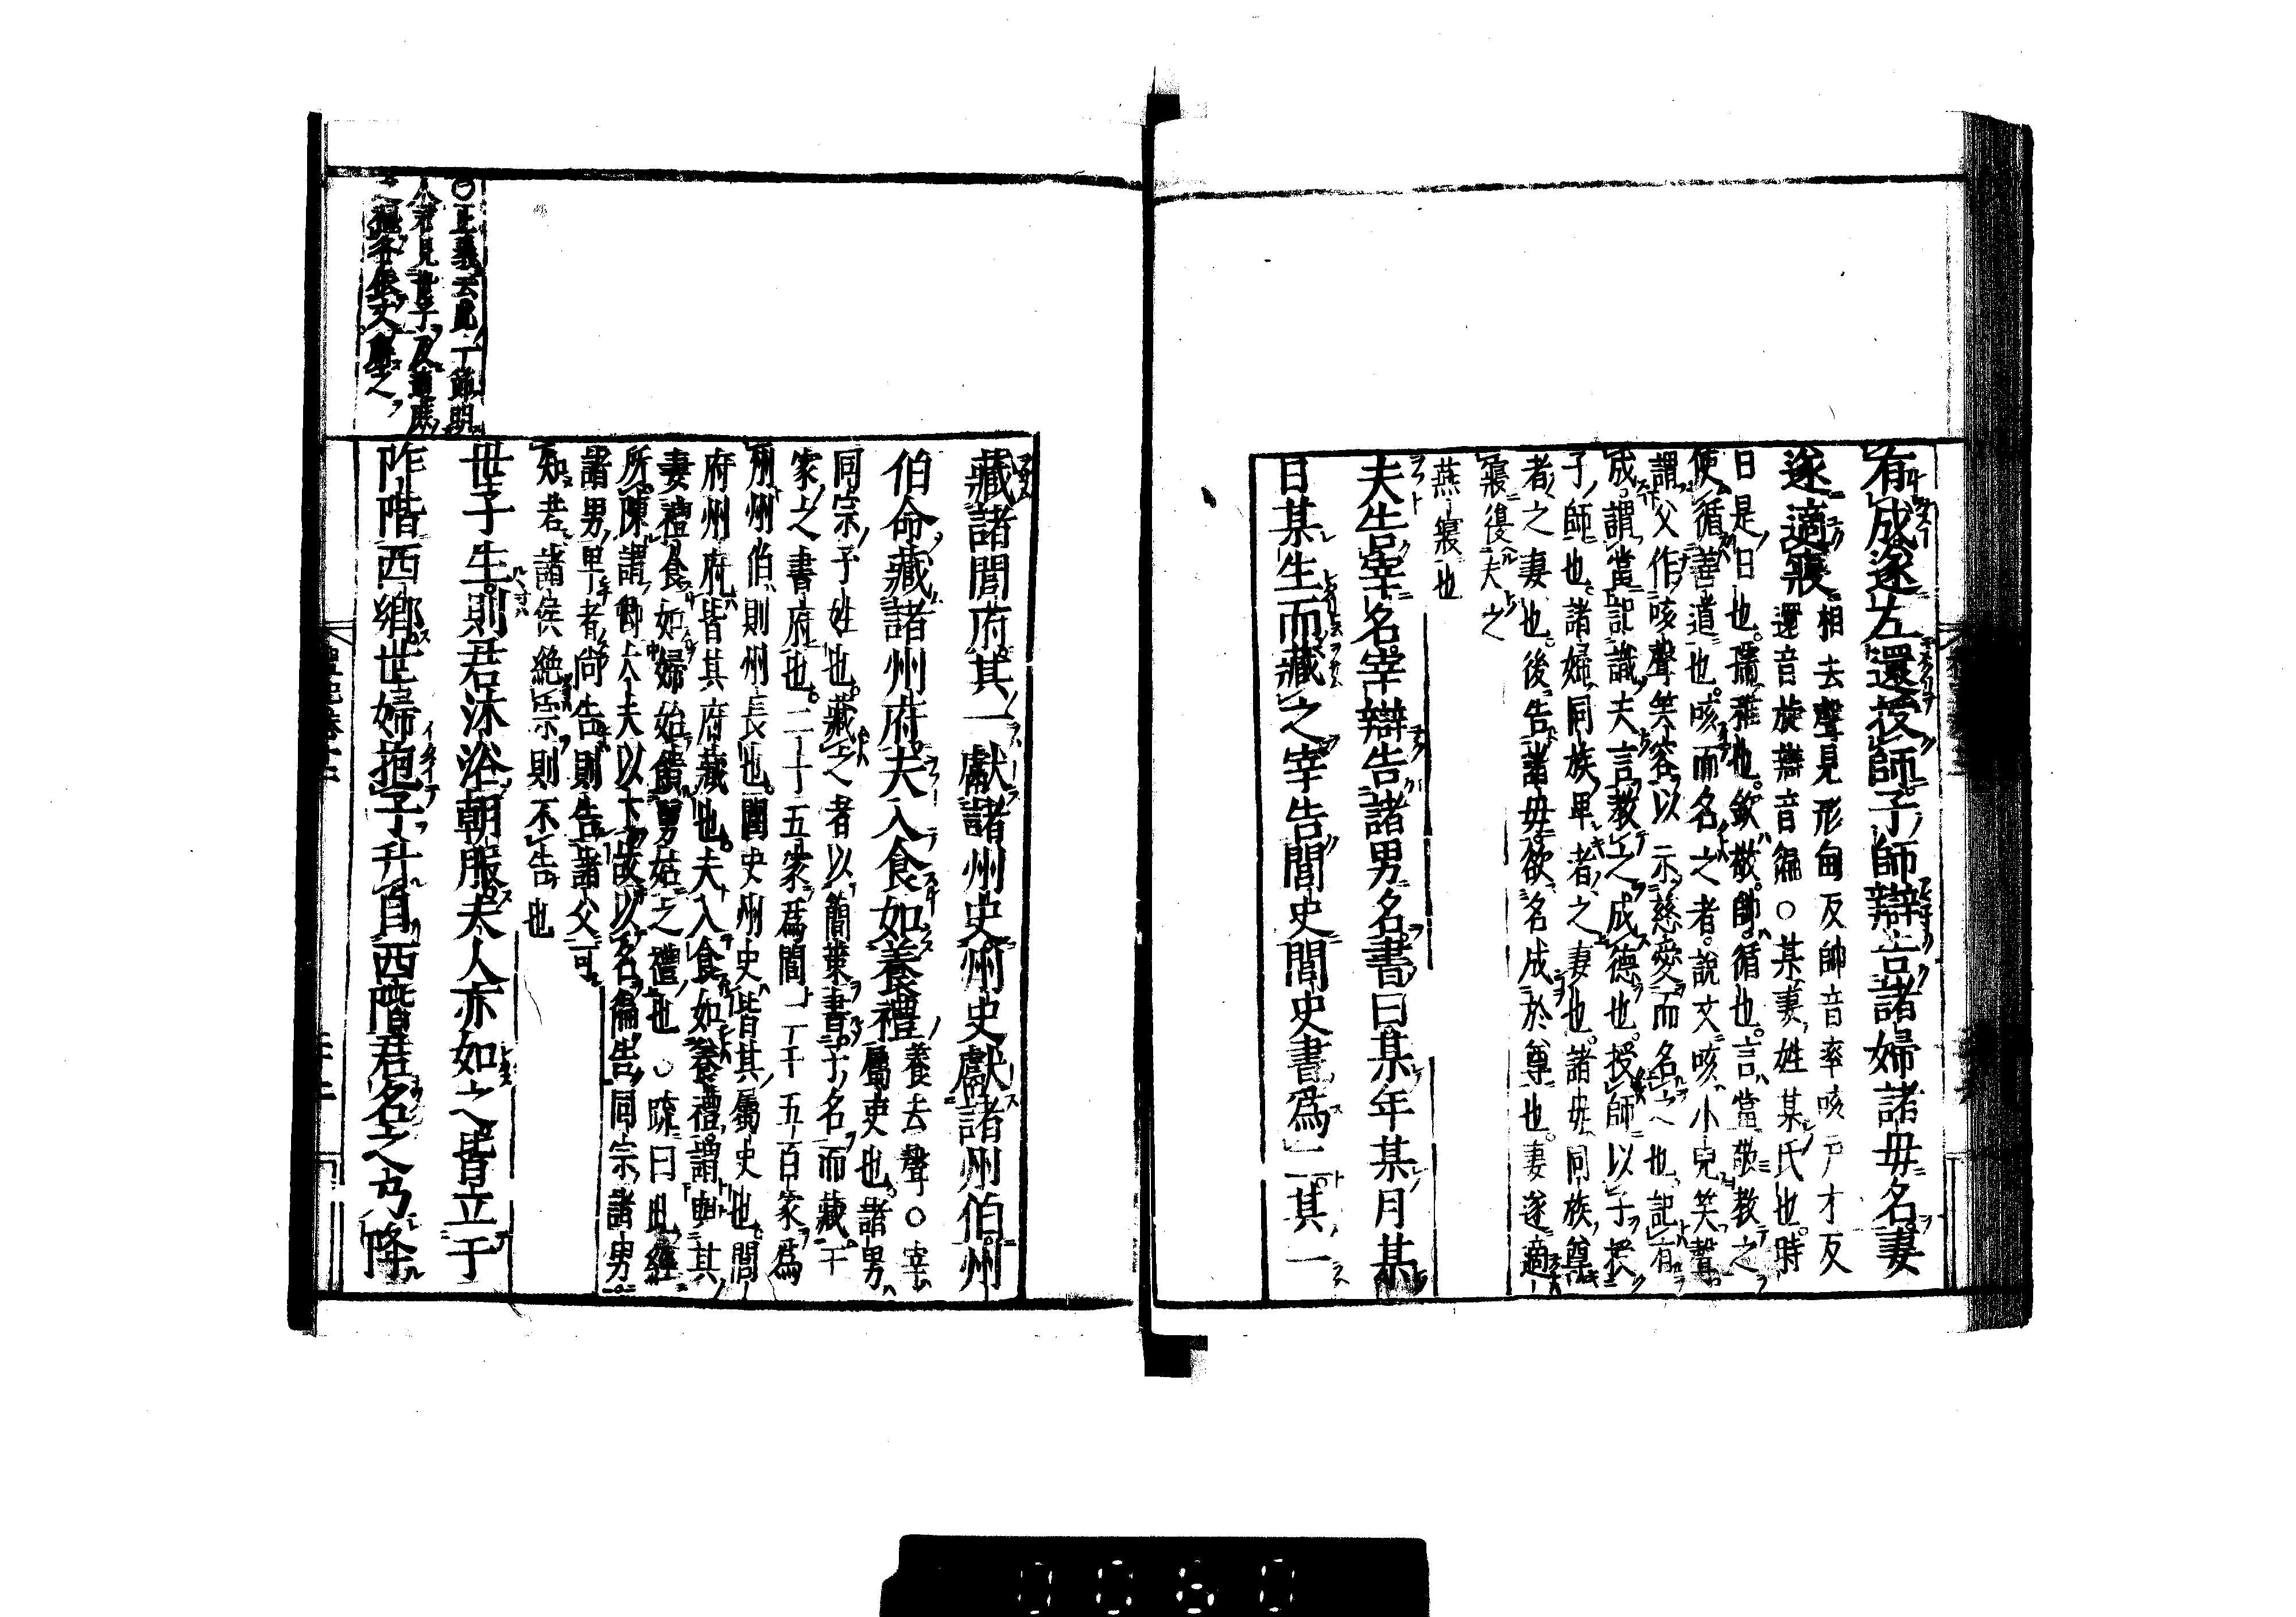 有成遂左還授師子師辯告諸婦諸母名妻
遂適寢
相去聲見形甸反帥音率咳戸才反
還音旋辯音徧○某妻姓某氏也時
日是日也孺稚也欽敬帥循也言當敬教之
使循善道也咳而名之者說文咳小兒笑聲
謂父作咳聲笑容以示慈愛而名之也記有
成謂當記識夫言教之成德也授師以子授
子師也諸婦同族卑者之妻也諸母同族尊
者之妻也後告諸母欲名成於尊也妻遂適
寢復夫之
燕寢也
夫告宰名宰辯告諸男名書曰某年某月某
日某生而藏之宰告閭史閭史書爲二其一
藏諸閭府其一獻諸州史州史獻諸州伯州
伯命藏諸州府夫入食如養禮
養去聲○宰
屬吏也諸男
同宗子姓也藏之者以簡策書子名而藏于
家之書府也二十五家爲閭二千五百家爲
州州伯則州長也閭史州史皆其屬史也閭
府州府皆其府藏也夫入食如養禮謂與其
妻禮食如婦始饋舅姑之禮也○疏曰此經
所陳謂卿大夫以下故以名徧告同宗諸男
諸男卑者尚告則告諸父可
知若諸侯絶宗則不告也
世子生則君沐浴朝服夫人亦如之皆立于
阼階西鄉世婦抱子升自西階君名之乃降
○正義云此一節明
人君見世子及適庶
之禮各依文解之